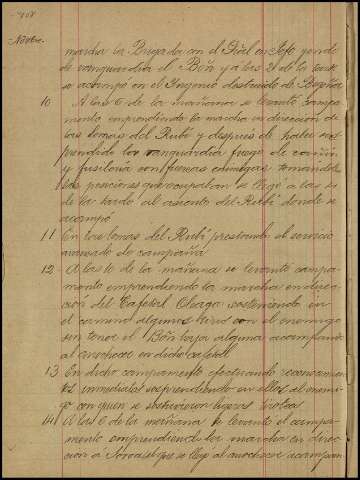 Novbre.
marcha la Brigada con el Gral en Jefe yendo
de vanguardia el Bón y á las 5 de la tarde
se acampó en el Ingenio destruido de
10 A las 6 de la mañana se levantó campa
mento emprendiendo la marcha en dirección de
las lomas del Rubí y después de haber
la vanguardia fuego de cañón
y fusilería con fuerzas enemigas tomándole
las posiciones que ocupaban se llegó a las
de la tarde al asiento del Rubí donde se
acampó
11 En las lomas del Rubí prestando el servicio
avanzado de campaña
12 A las 6 de la mañana se levantó campa
mento emprendiendo la marcha en direc
ción del Cafetal sosteniendo en
el camino algunos tiros con el enemigo
sin tener el Bón baja alguna acampando
al anochecer en dicho cafetal
13 En dicho campamento efectuando reconocimien
tos inmediatos sorprendiendo en ellos al enemi
go con quien se sostuvieron ligeros tiroteos
14 A las 6 de la mañana se levantó el campa
mento emprendiendo la marcha en direc
ción a que se llegó al anochecer acampan